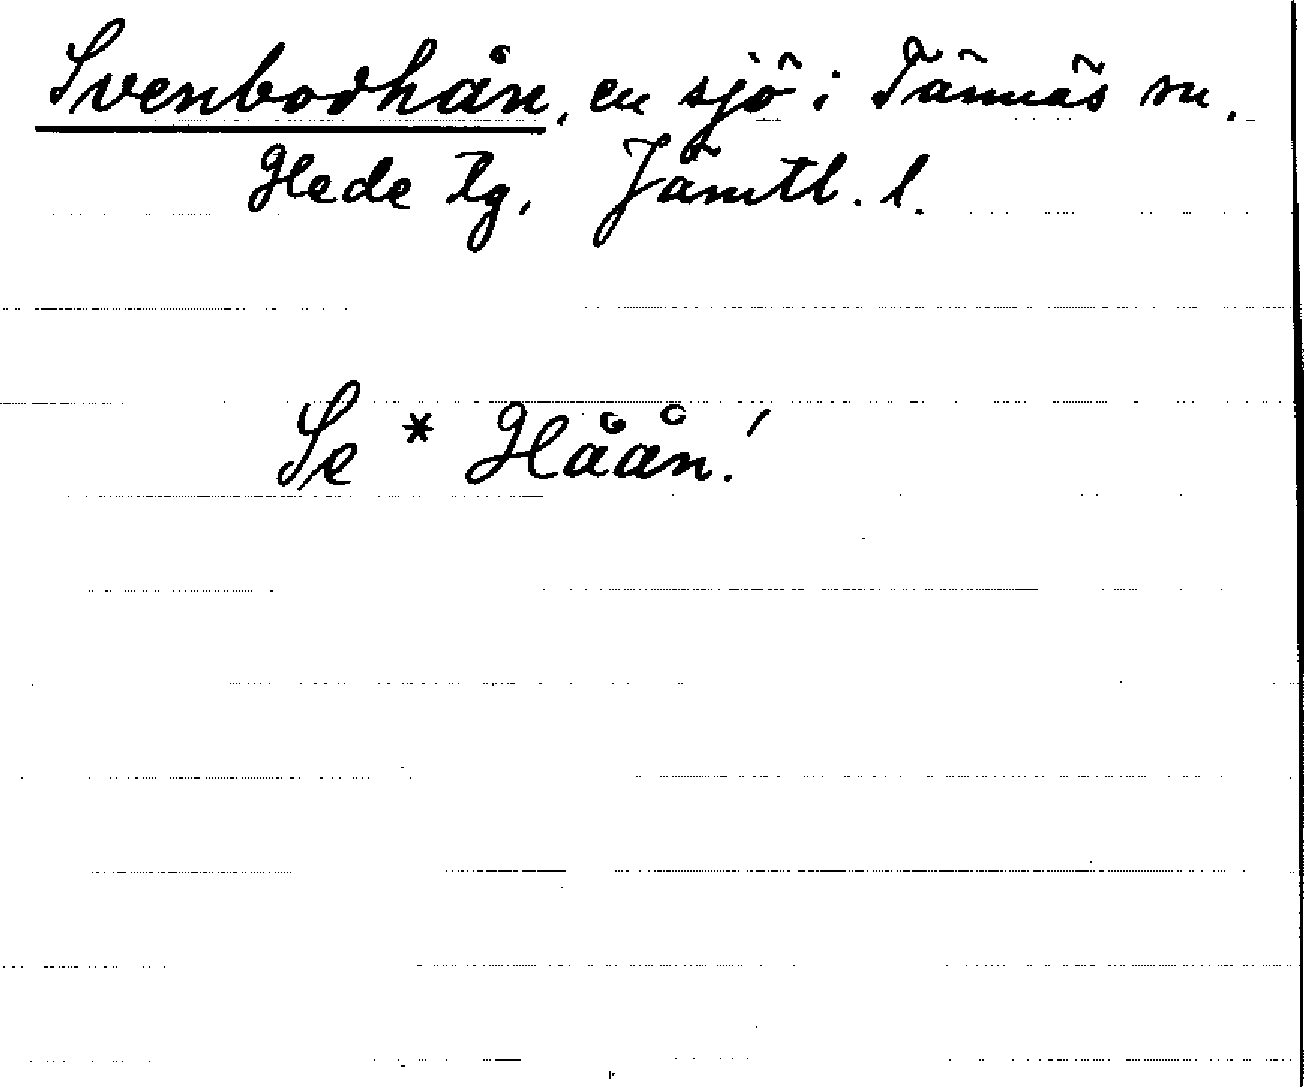 Svenbodhån, en sjö i Tännäs sn.
Hede tg, Jämtl. l.
Se * Håån!